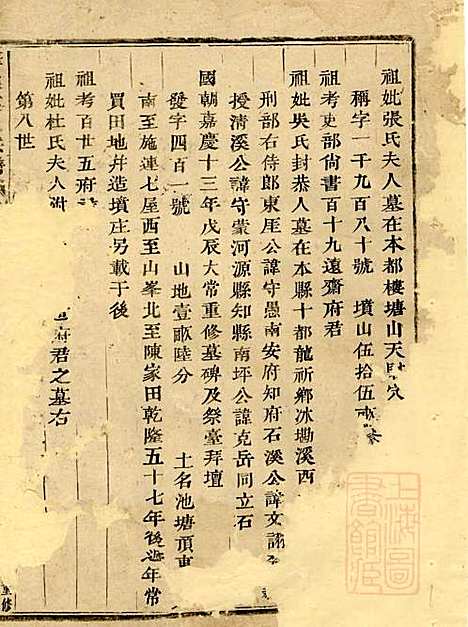 祖妣張氏夫人墓在本都樓塘山天 穴
稱字一千九百八十號 墳山伍拾伍畝
祖考吏部尙書百十九遠齋府君
祖妣吳氏封恭人墓在本縣十都龍祈鄉冰坳溪西
刑部右侍郎東厓公諱守愚南安府知府石溪公諱文
授淸溪公諱守蒙河源縣知縣南坪公諱克岳同立石
國朝嘉慶十三年戊辰大常重修墓碑及祭臺拜壇
發字四百一號 山地壹畝陸分 土名池塘頂東
南至施連七屋西至山峯北至陳家田乾隆五十七年後迯年常
買田地幷造墳庄另載于後
祖考百世五府
祖妣杜氏夫人 府君之墓右
第八世
重修
上海圖書館藏